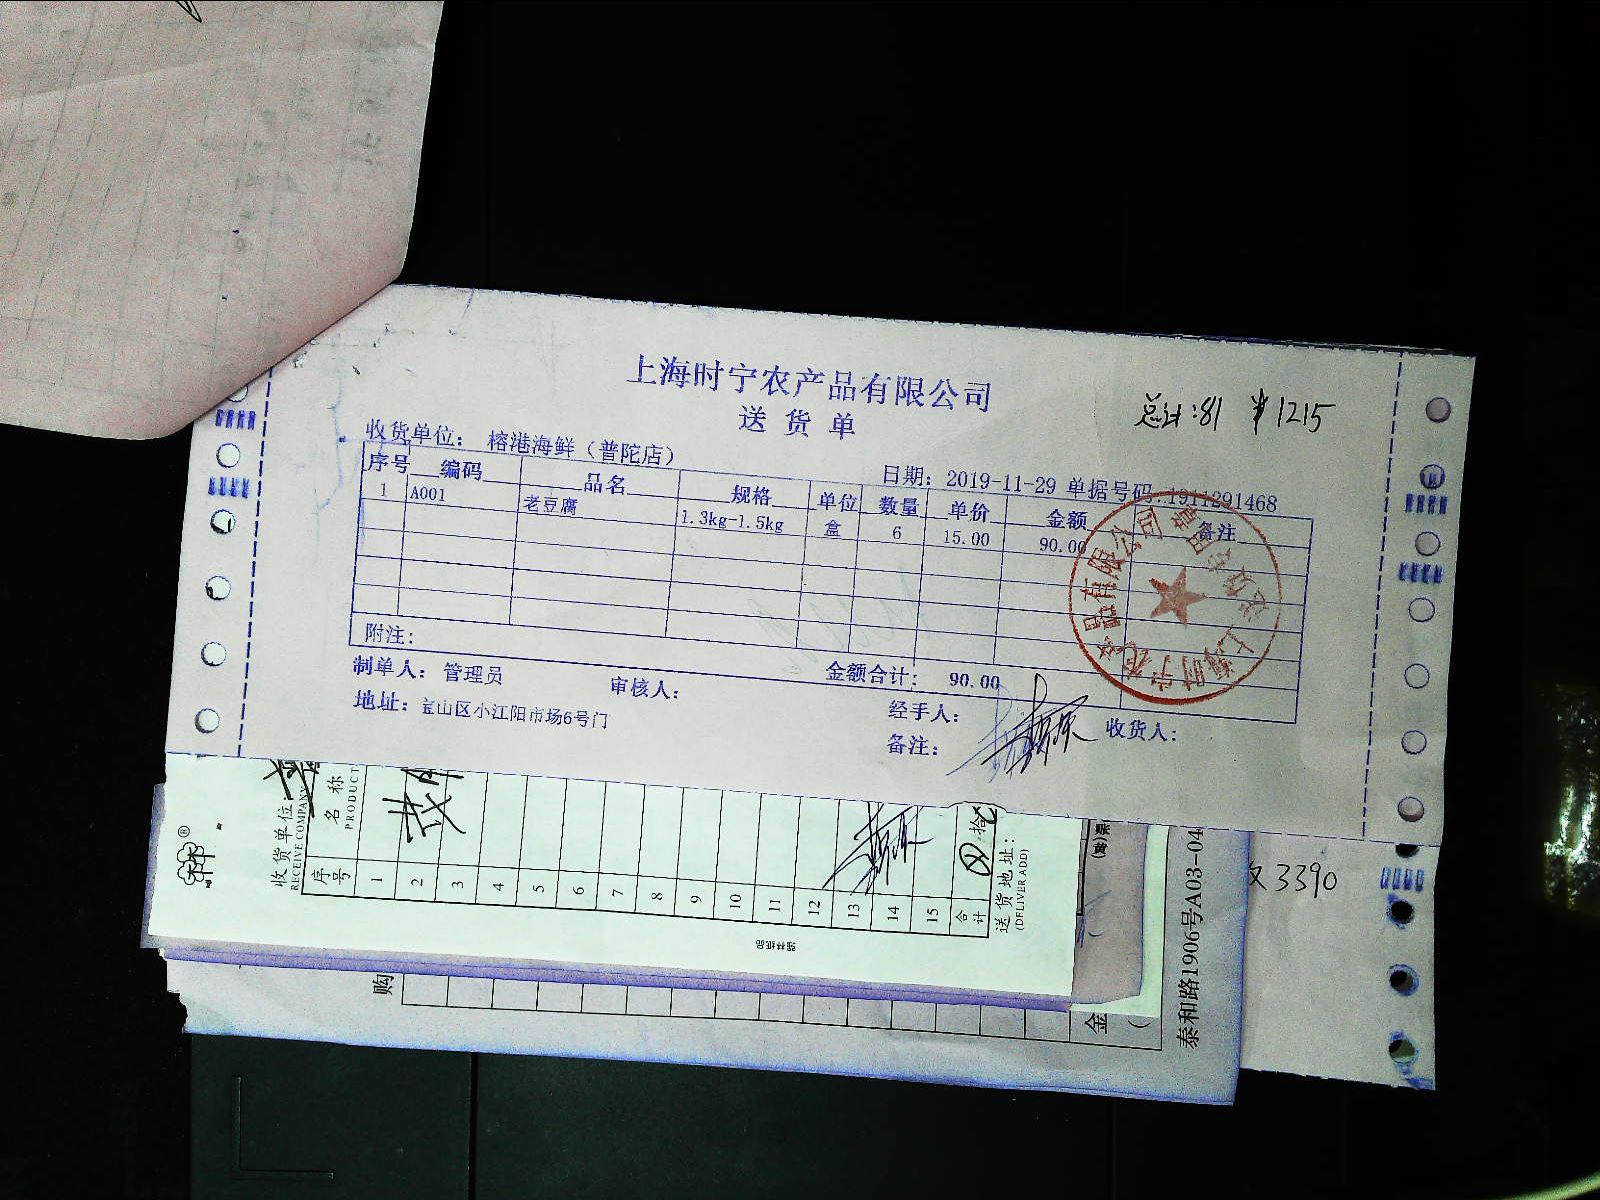 上海时宁农产品有限公司
送货单
总计:81 ¥1215
收货单位： 榕港海鲜（普陀店）
日期：2019-11-29 单据号码:1911291468
序号 编码 品名 规格 单位 数量 单价 金额 备注
1 A001 老豆腐 1.3kg-1.5kg 盒 6 15.00 90.00
附注:
金额合计: 90.00
制单人: 管理员 审核人: 经手人: 收货人:
地址: 宝山区小江阳市场6号门 备注:
上海时宁农产品有限公司
收货单位:
RECEIVE COMPANY
序号 名称
PRODUCT
1
2
3
4
5
6
7
8
9
10
11
12
13
14
15
合计
拾
送货地址:
(DELIVER ADD)
强林纸品
购
金
泰和路1906号A03-04
3390